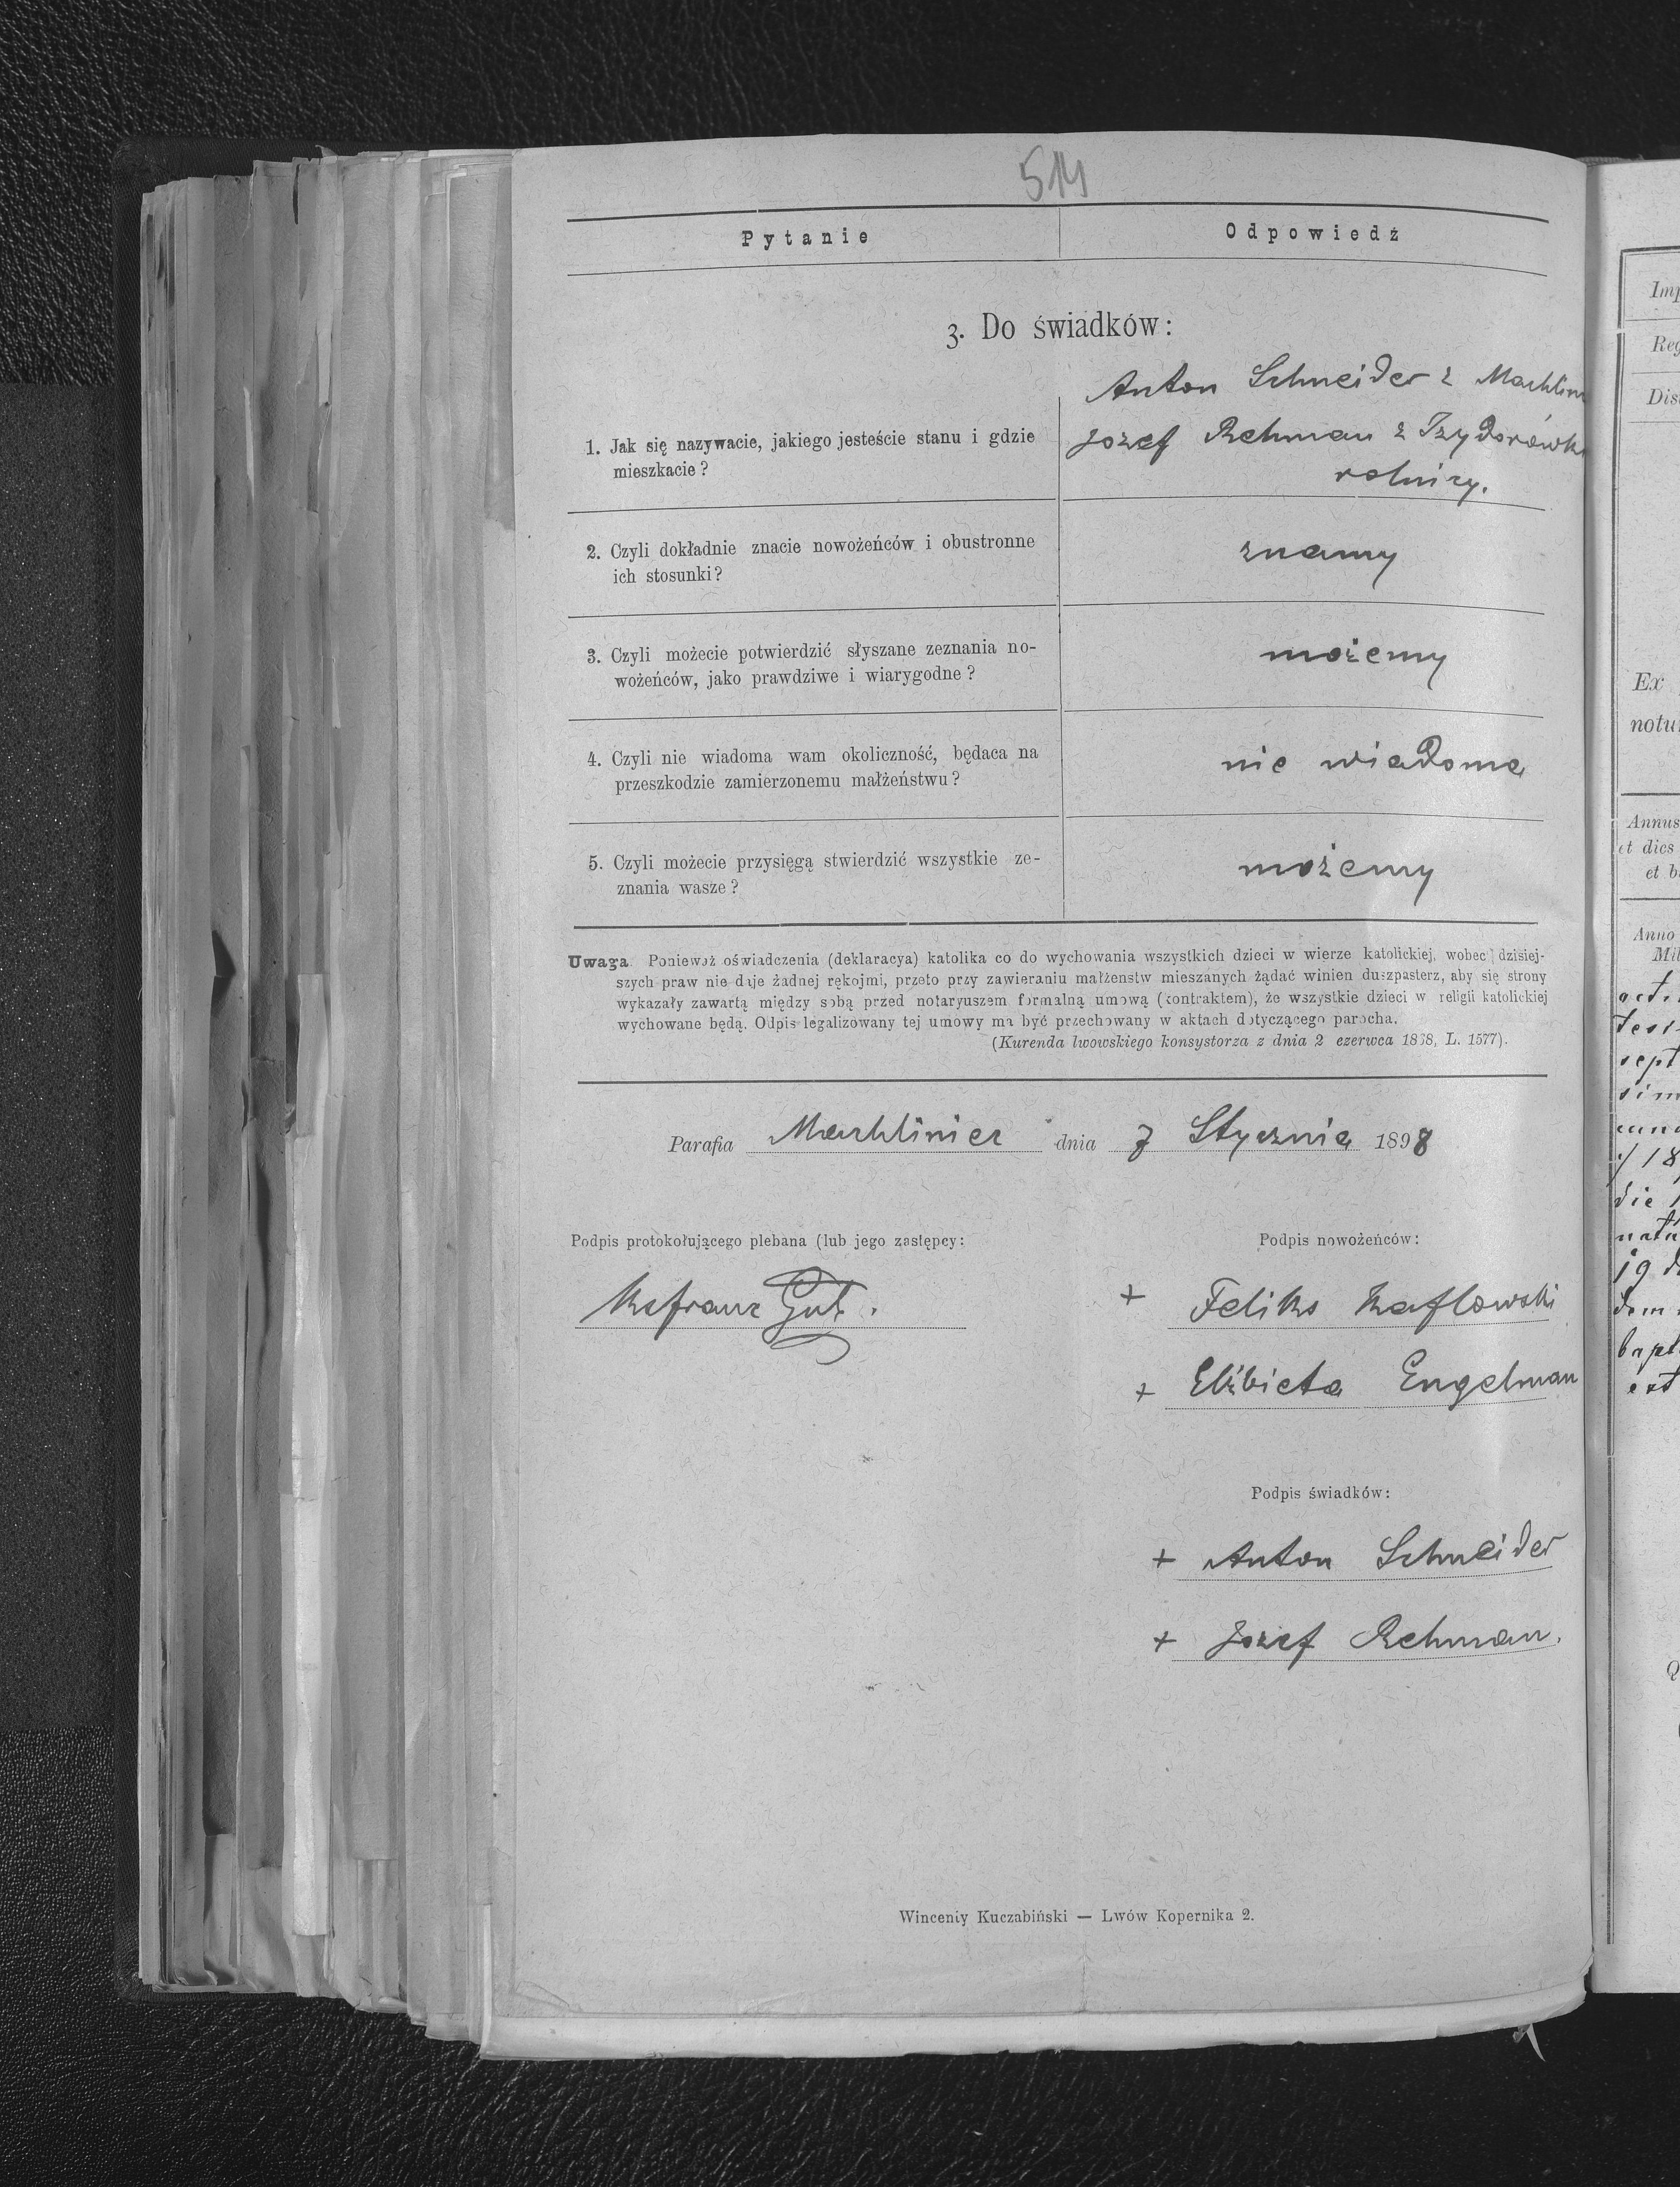 514
Pytanie
Odpowiedź
3. Do świadków:
Anton Schneider z Machlin
1. Jak się nazywacie, jakiego jesteście stanu i gdzie
mieszkacie?
Jozef Rehman z Izydorówk
rolnicy.
2. Czyli dokładnie znacie nowożeńców i obustronne
ich stosunki?
znamy
3. Czyli możecie potwierdzić słyszane zeznania no-
wożeńców, jako prawdziwe i wiarygodne?
możemy
4. Czyli nie wiadoma wam okoliczność, będaca na
przeszkodzie zamierzonemu małżeństwu?
nie wiadoma
5. Czyli możecie przysięgą stwierdzić wszystkie ze-
znania wasze?
możemy
Uwaga. Ponieważ oświadczenia (deklaracya) katolika co do wychowania wszystkich dzieci w wierze katolickiej, wobec dzisiej-
szych praw nie daje żadnej rękojmi, przeto przy zawieraniu małżenstw mieszanych żądać winien duszpasterz, aby się strony
wykazały zawartą między sobą przed notaryuszem formalną umową (kontraktem), że wszystkie dzieci w religii katolickiej
wychowane będą. Odpis legalizowany tej umowy ma być przechowany w aktach dotyczącego parocha.
(Kurenda lwowskiego konsystorza z dnia 2 czerwca 1868, L. 1577).
Parafia Machliniec dnia 7 Stycznia 1898
Podpis protokołującego plebana (lub jego zastępcy:
Podpis nowożeńców:
Gut.
+ Feliks Kaflowski
+ Elżbieta Engelman
Podpis świadków:
+ Anton Schneider
+ Jozef Rehman.
Winceniy Kuczabiński — Lwów Kopernika 2.
Imp
Reg
Dis
Ex
notu
Annus
et dies
et b
Anno
Mil
sept
die
19
bapt
est